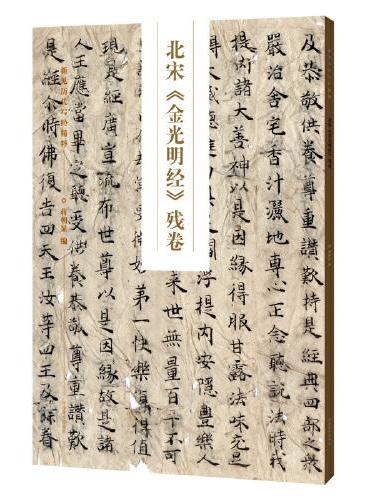 北宋《金光明经》残卷
及恭敬供养尊重讚歎持是經典四部之衆
嚴治舍宅香汁灑地專心正念聽說法時我
提内諸大善神以是因緣得服甘露法味充足
内安隱豐樂人
來世無量百千不可
第一快樂復得值
現是經廣宣流布世尊以是因緣故是諸
人王應當畢定聽受供養恭敬尊重讚歎
尒時佛告四天王汝等四王及餘眷